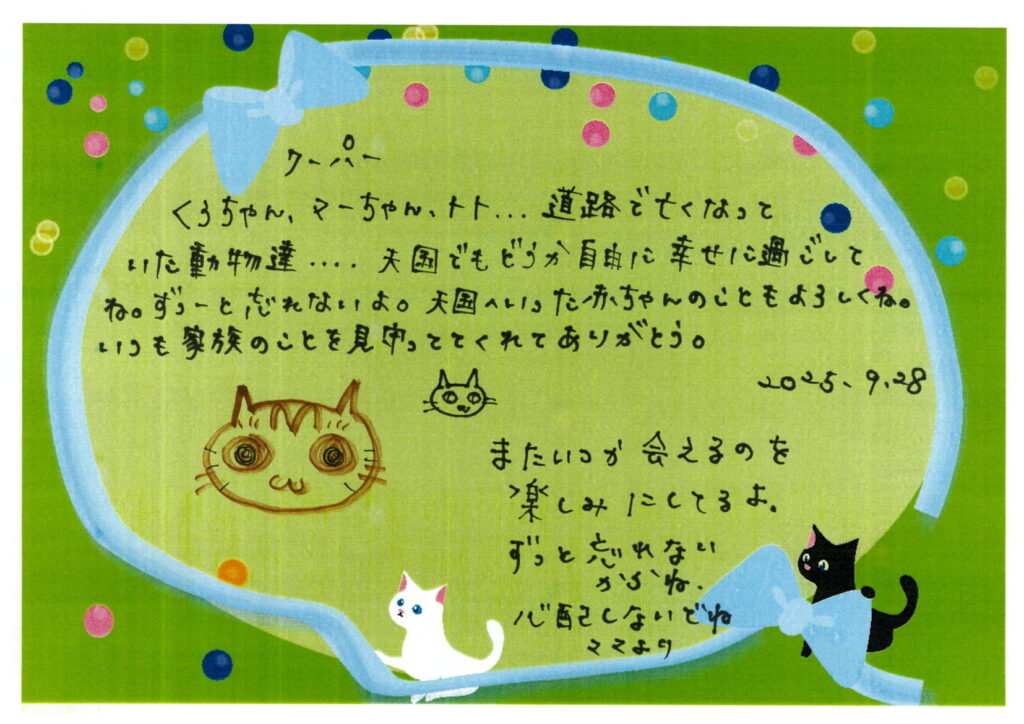 クーパー
くろちゃん、マーちゃん、トト... 道路で亡くなって
いた動物達.... 天国でもどうか自由に幸せに過ごして
ね。ずぅーと忘れないよ。天国へいった赤ちゃんのこともよろしくね。
いつも家族のことを見守っててくれてありがとう。
2025、9.28
またいつか会えるのを
楽しみにしてるよ。
ずっと忘れない
からね.
心配しないでね
ママより